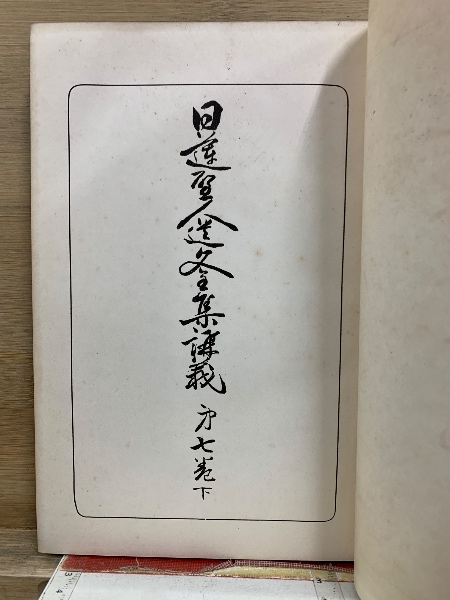 日蓮聖人遺文全集講義 第七巻 下